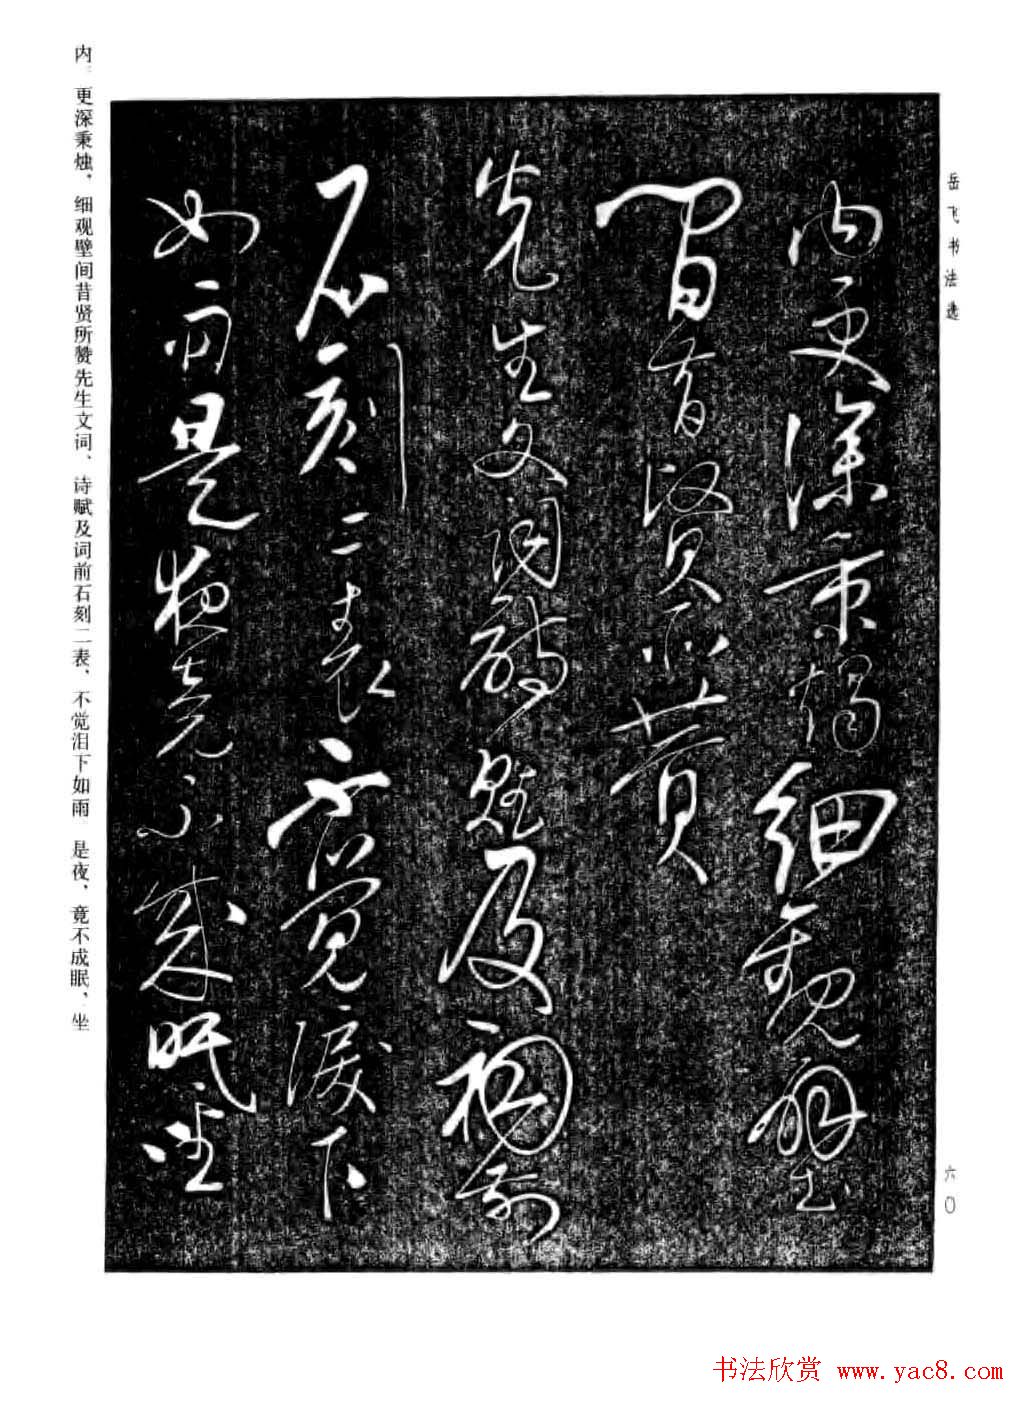 岳飞书法选
六〇
内更深秉燭細觀壁
間昔賢所贊
先生文詞詩賦及祠前
石刻二表不覺淚下
如雨是夜竟不成眠坐
内。更深秉烛，细观壁间昔贤所赞先生文词、诗赋及词前石刻二表、不觉泪下如雨 是夜、竟不成眠、坐
书法欣赏 www.yac8.com